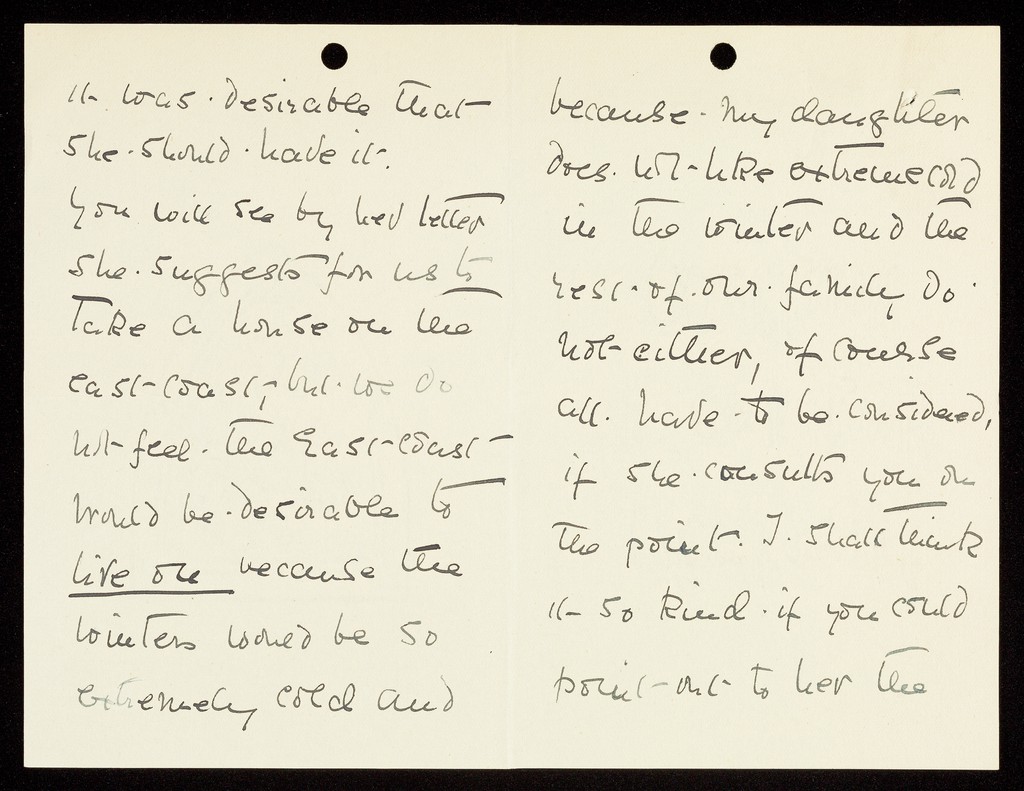 it was desirable that
she should have it.
you will see by her letter
she suggests for us to
Take a house on the
east-coast, but we do
not feel the East-coast
would be desirable to
live on because the
winters would be so
extremely cold and
because my daughter
does not like extreme cold
in the winter and the
rest of our family do
not either, of course
all have to be considered,
if she consults you on
the point. I shall think
it so kind if you could
point out to her the